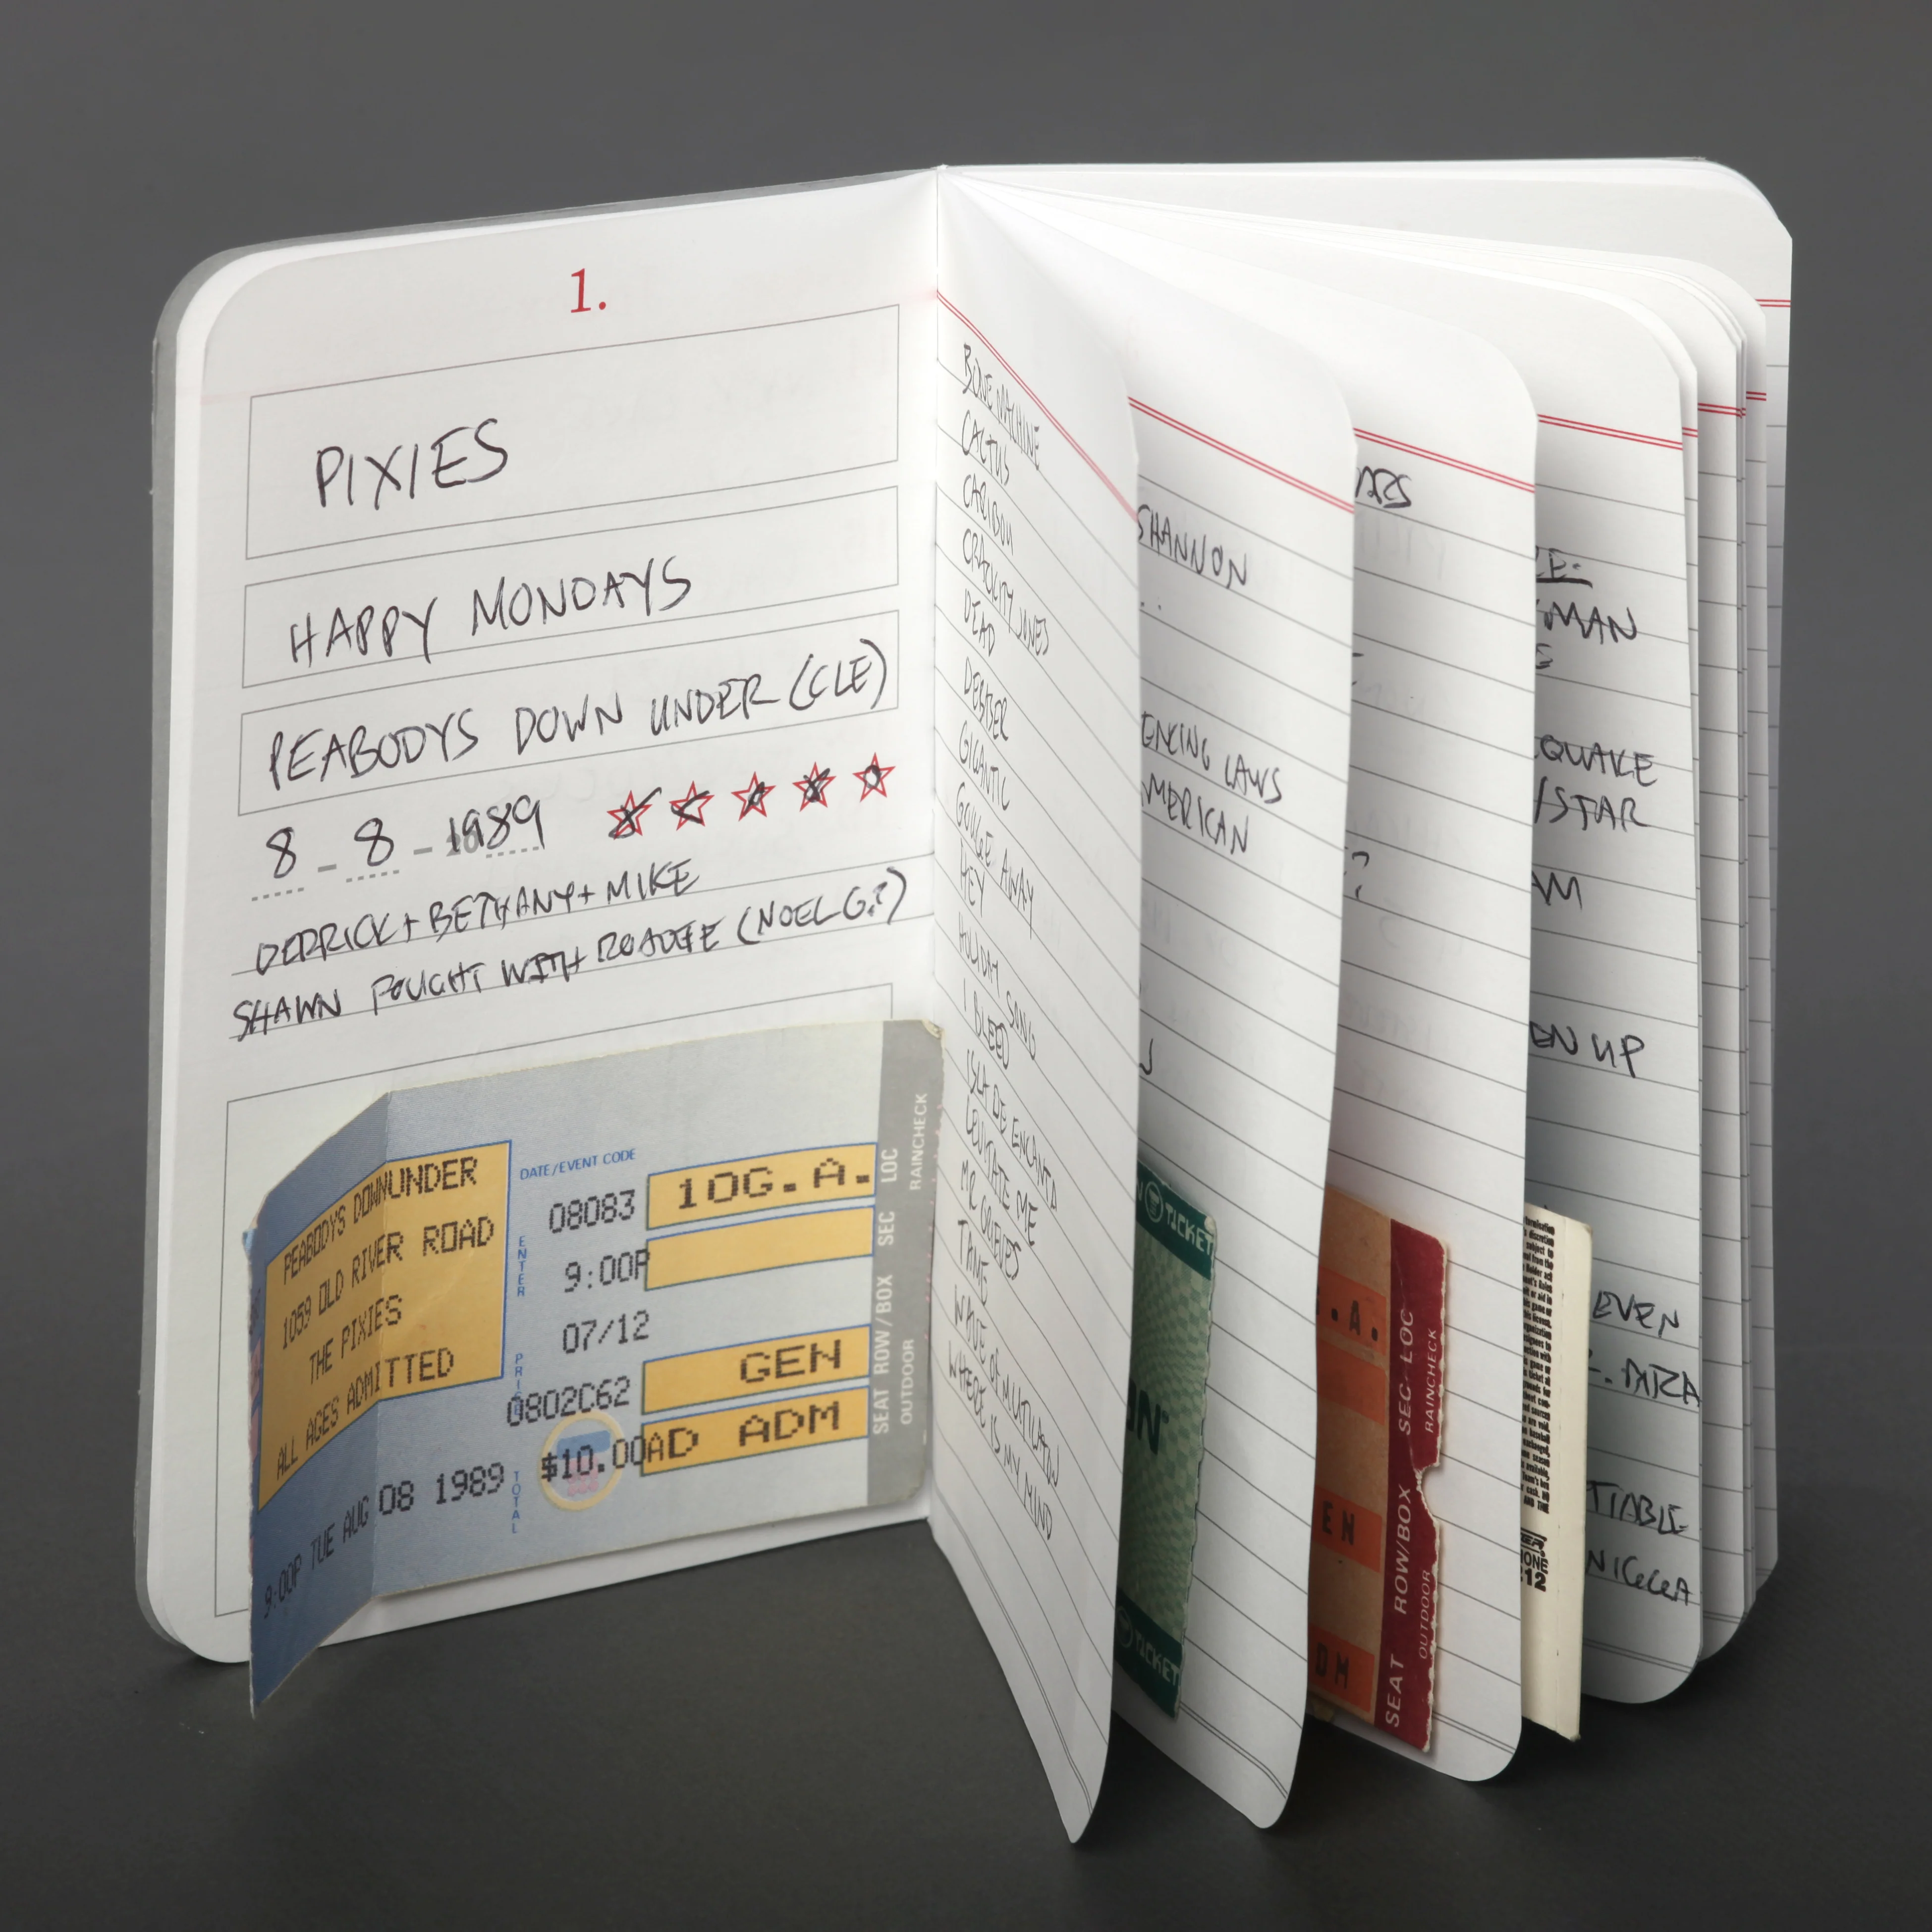 1.
PIXIES
HAPPY MONDAYS
PEABODYS DOWN UNDER (CLE)
8 - 8 - 1989
DERRICK + BETHANY + MIKE
SHAWN FOUGHT WITH ROADIE (NOEL G.?)
PEABODYS DOWNUNDER
1059 OLD RIVER ROAD
THE PIXIES
ALL AGES ADMITTED
9:00P TUE AUG 08 1989
DATE/EVENT CODE
ENTER
PRICE
TOTAL
08083
9:00P
07/12
0802C62
$10.00
10G.A.
GEN
AD ADM
LOC
SEC
SEAT ROW/BOX
RAINCHECK
OUTDOOR
BONE MACHINE
CACTUS
CARIBOU
CRACKITY JONES
DEAD
DEBASER
GIGANTIC
GOUGE AWAY
HEY
HOLIDAY SONG
I BLEED
ISLA DE ENCANTA
LEVITATE ME
MR GRIEVES
TAME
WAVE OF MUTILATION
WHERE IS MY MIND
SHANNON
ENCING LAWS
MERICAN
TICKET
TICKET
.A.
EN
DM
SEAT ROW/BOX SEC LOC
OUTDOOR
RAINCHECK
MAN
QUAKE
/STAR
AM
EN UP
EVEN
TIABLE